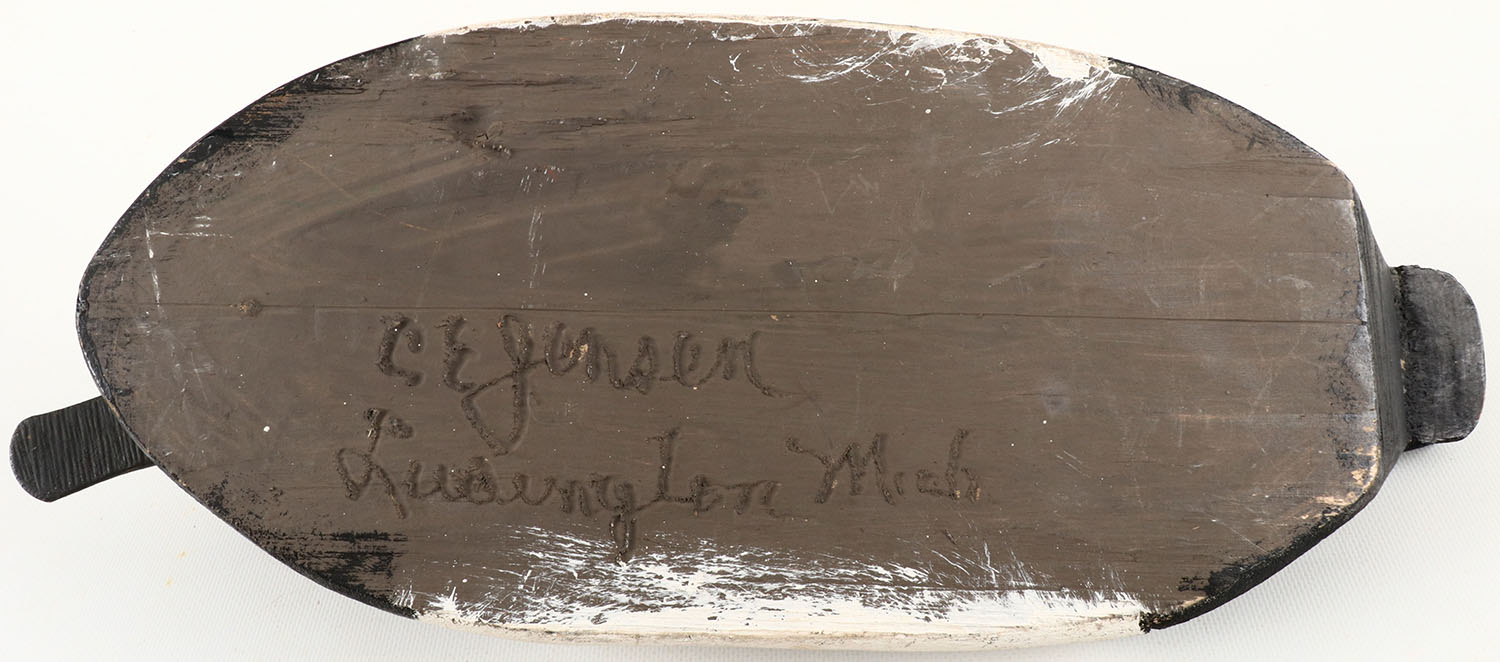 C E Jensen
Ludington Mich